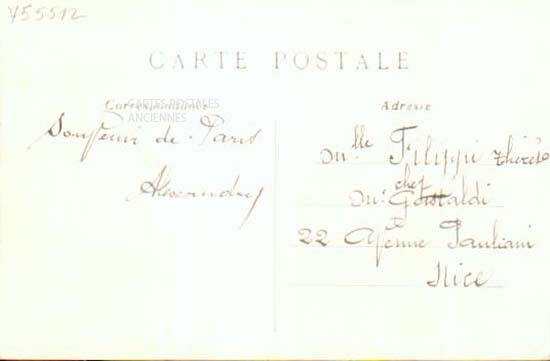 755512
CARTE POSTALE
Correspondance
CARTES POSTALES
ANCIENNES
Adresse
Souvenir de Paris
Mlle Filippi Thérèse
chez
Mr Gastaldi
22 Avenue Pauliani
Nice